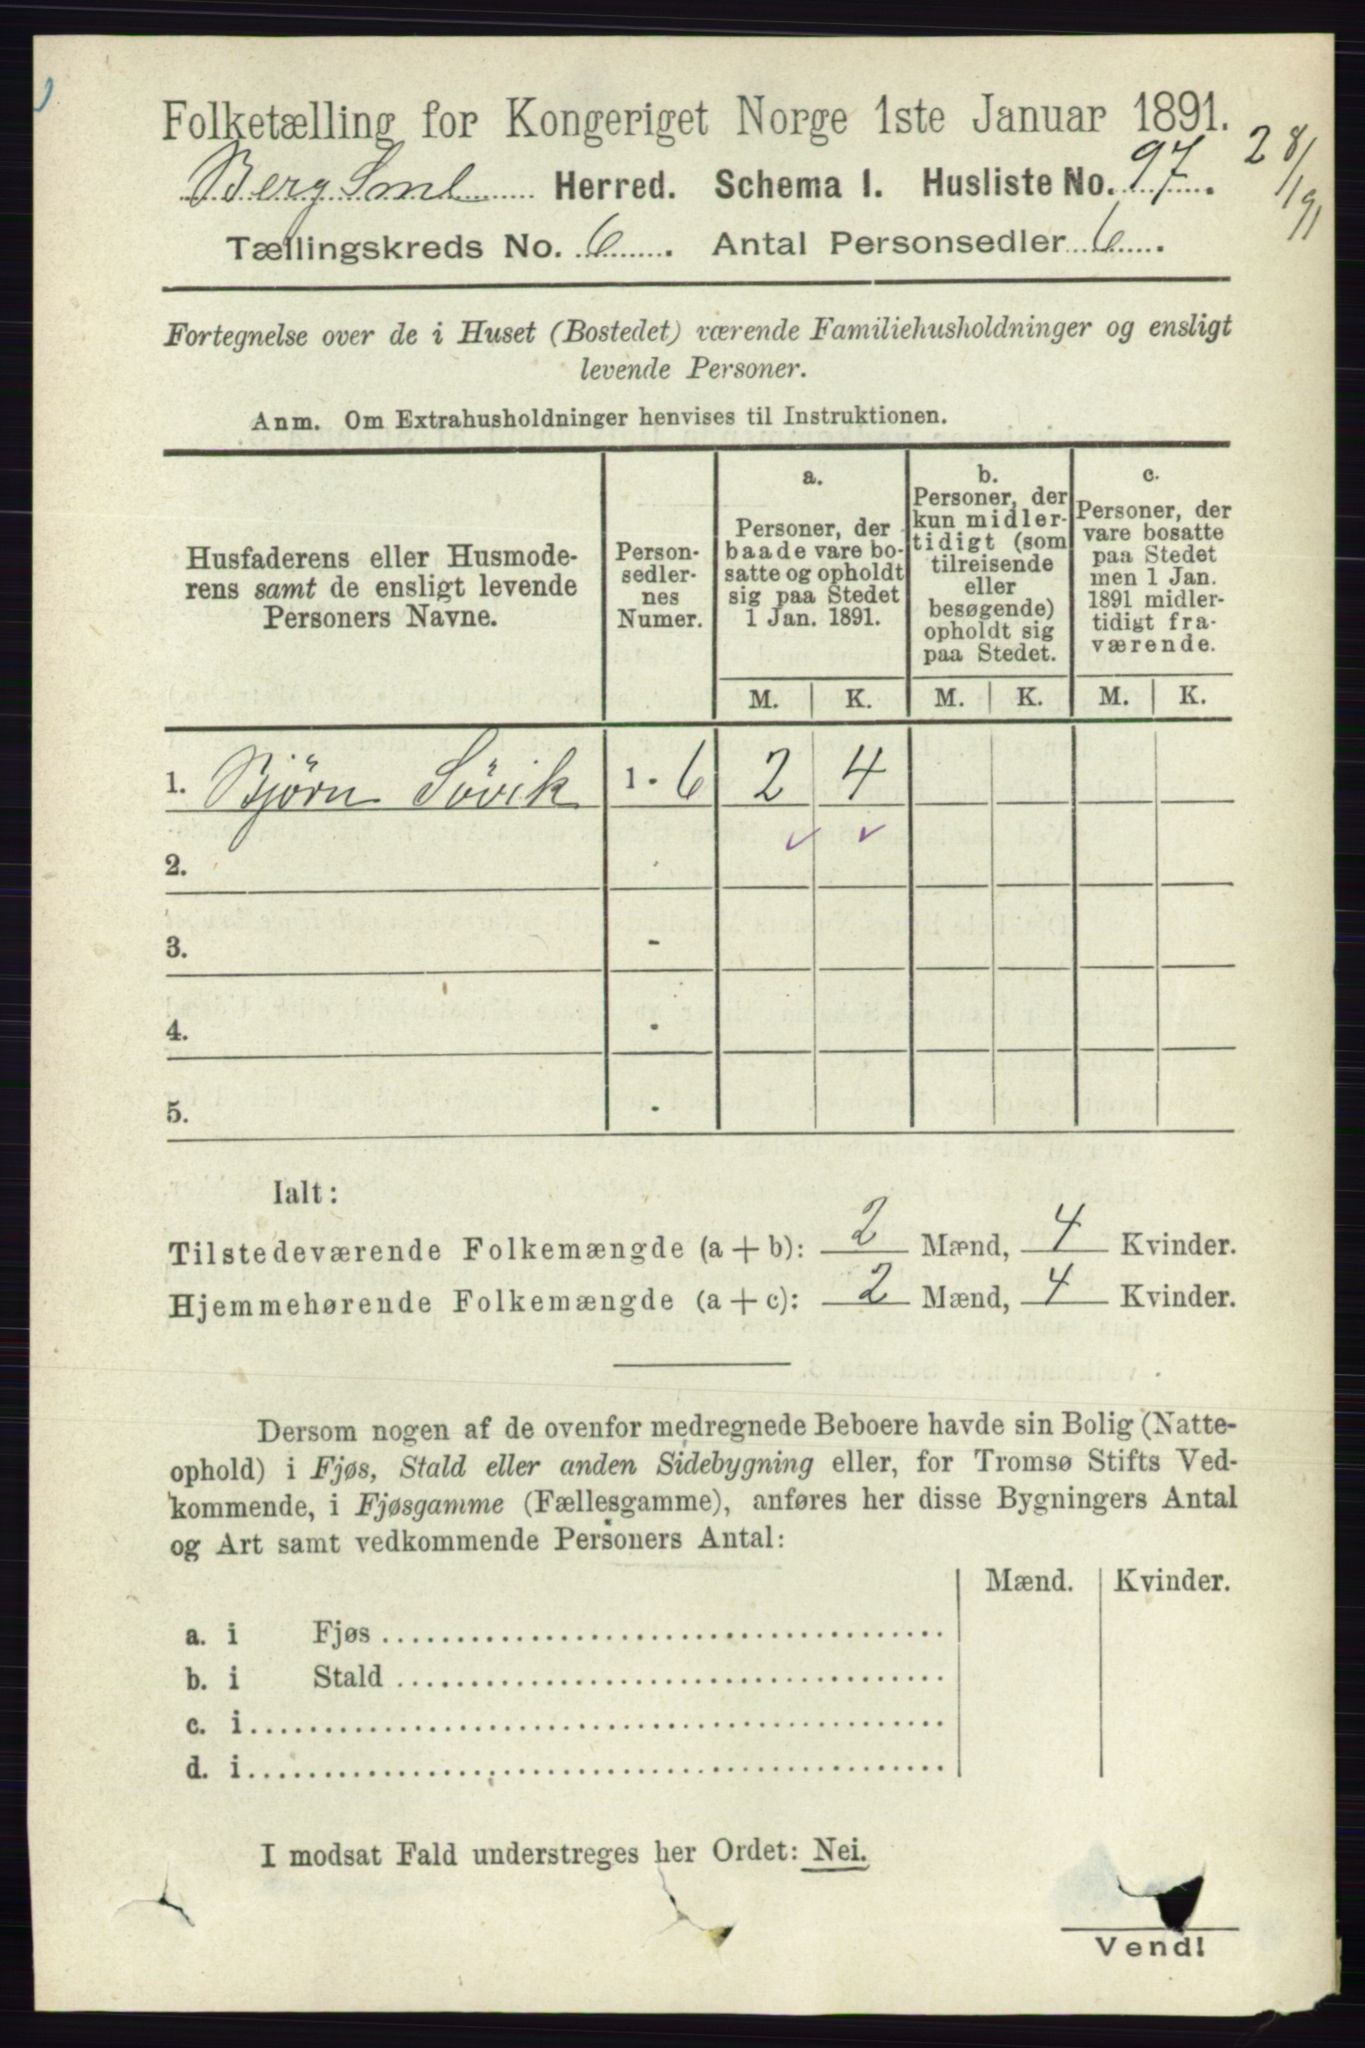 Folketælling for Kongeriget Norge 1ste Januar 1891.
Berg Sml Herred. Schema I. Husliste No. 97.
28/1 91
Tællingskreds No. 6. Antal Personsedler 6.
Fortegnelse over de i Huset (Bostedet) værende Familiehusholdninger og ensligt
levende Personer.
Anm. Om Extrahusholdninger henvises til Instruktionen.
Husfaderens eller Husmode-
rens samt de ensligt levende
Personers Navne.
Person-
sedler-
nes
Numer.
a.
Personer, der
baade vare bo-
satte og opholdt
sig paa Stedet
1 Jan. 1891.
b.
Personer, der
kun midler-
tidigt (som
tilreisende
eller
besøgende)
opholdt sig
paa Stedet.
c.
Personer, der
vare bosatte
paa Stedet
men 1 Jan.
1891 midler-
tidigt fra-
værende.
M. K. M. K. M. K.
1. Bjørn Sövik 1 - 6 2 4
2.
3. -
4. -
5. -
Ialt:
Tilstedeværende Folkemængde (a + b): 2 Mænd, 4 Kvinder.
Hjemmehørende Folkemængde (a + c): 2 Mænd, 4 Kvinder.
Dersom nogen af de ovenfor medregnede Beboere havde sin Bolig (Natte-
ophold) i Fjøs, Stald eller anden Sidebygning eller, for Tromsø Stifts Ved-
kommende, i Fjøsgamme (Fællesgamme), anføres her disse Bygningers Antal
og Art samt vedkommende Personers Antal:
Mænd. Kvinder.
a. i Fjøs
b. i Stald
c. i
d. i
I modsat Fald understreges her Ordet: Nei.
Vend!